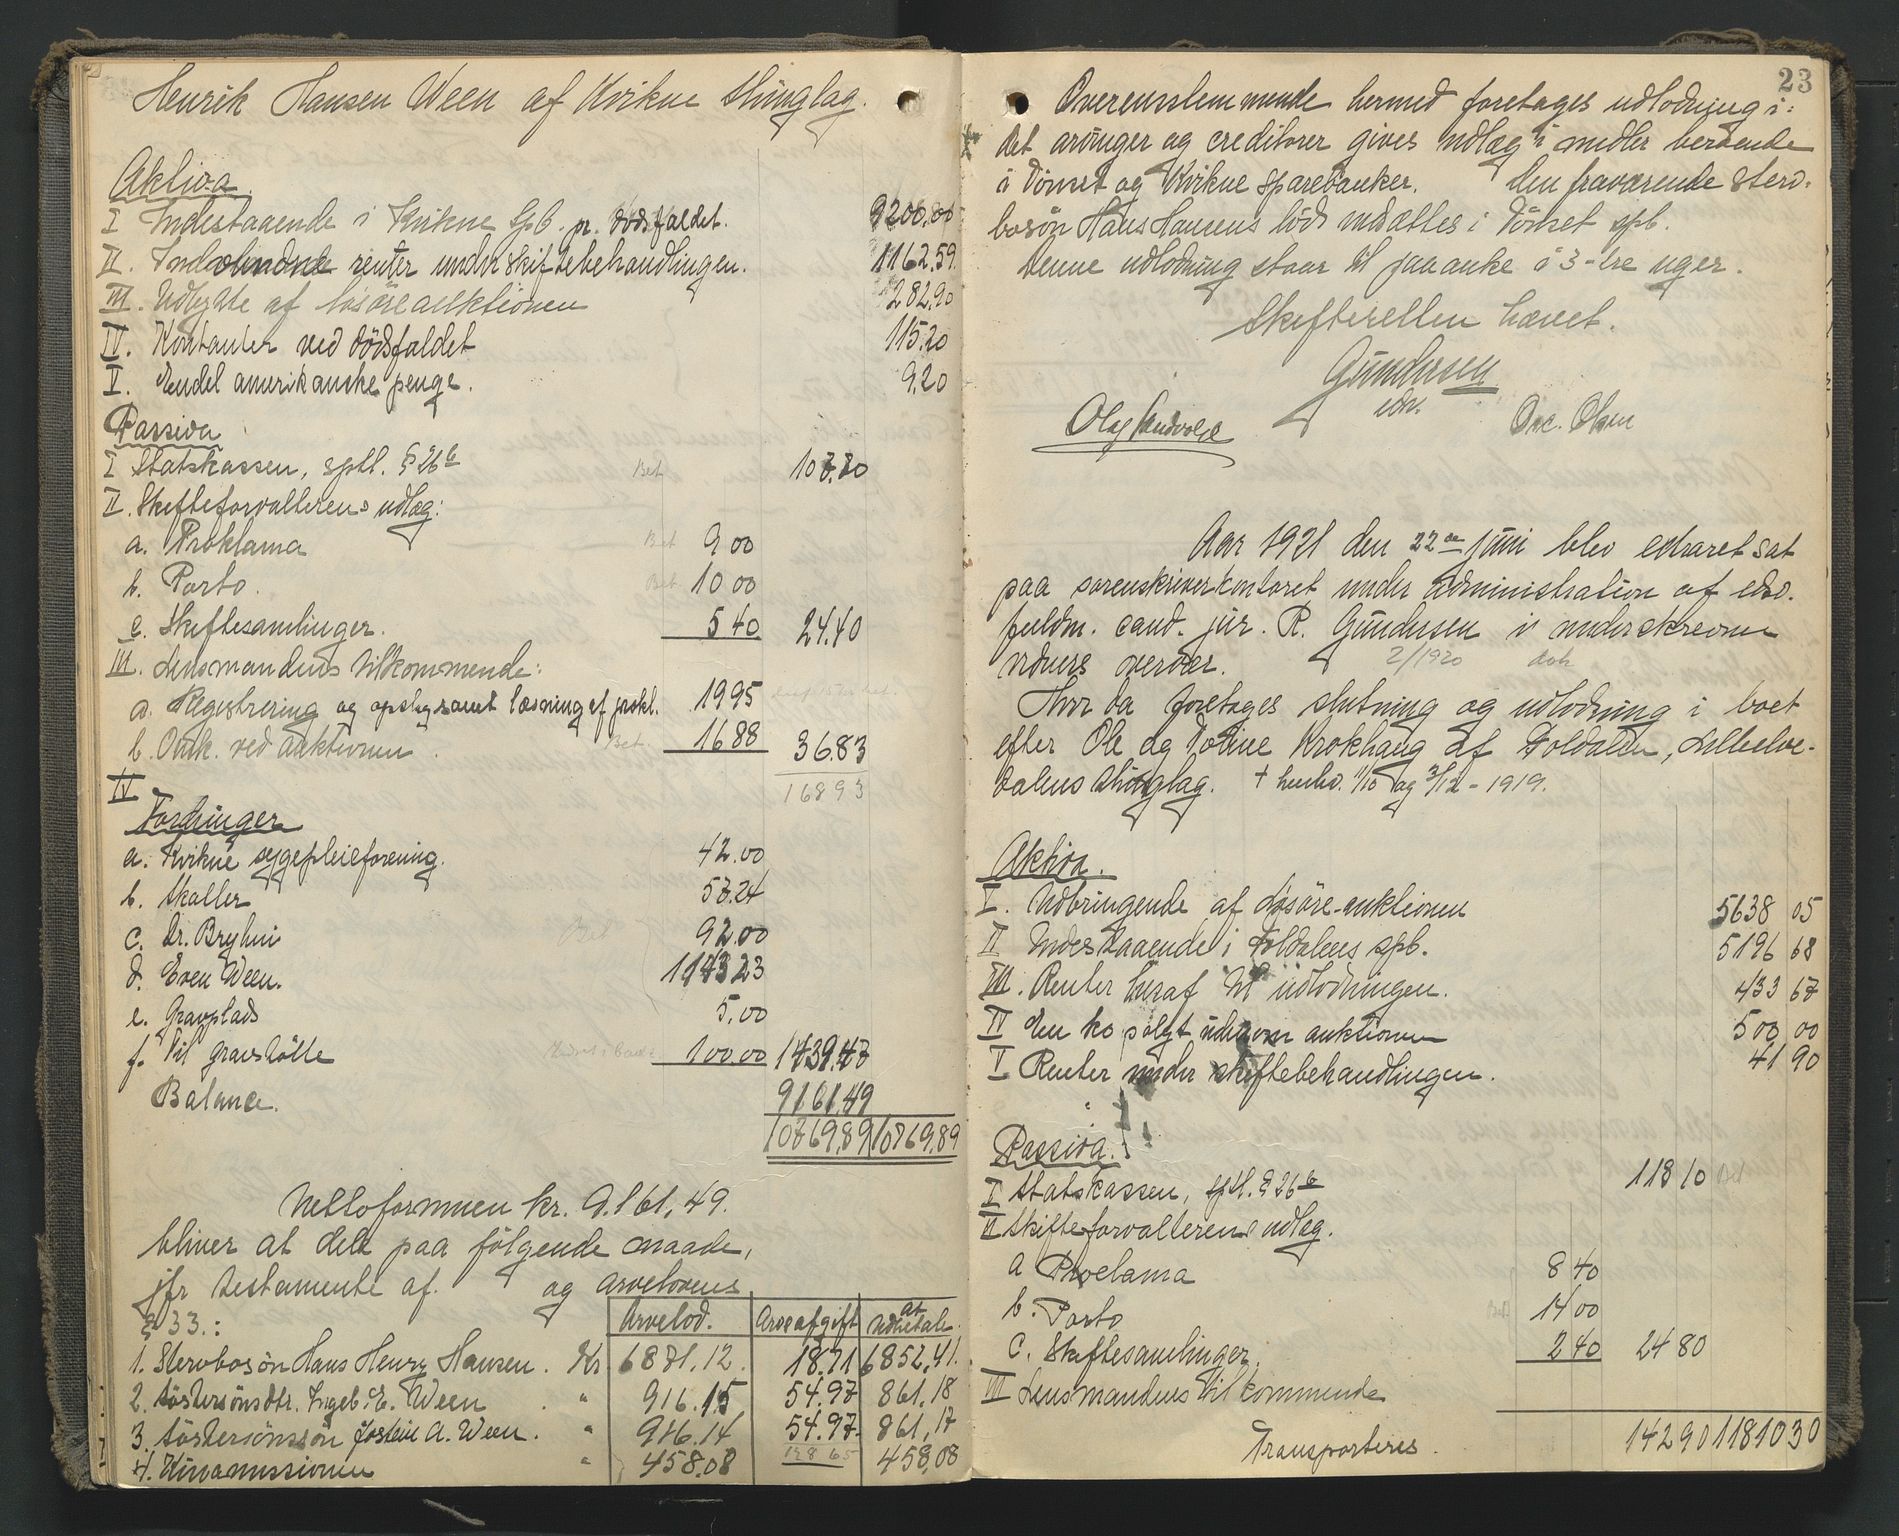 Henrik Hansen Ween af Kvikne thinglag.
Aktiva.
I Indestaaende i Kvikne Spb. pr. dödsfaldet. 9200,00
II. renter under skiftebehandlingen. 1162.59
III. Udbytte af lösöreauktionen 282,90
IV. Kontanter ved dödsfaldet 115.20
V. Endel amerikanske penge. 9.20
Passiva
I Statskassen, sptl. § 26 b Bet 107.70
II. Skifteforvalterens udlæg:
a. Proklama Bet 9 00
b. Porto. Bet 10 00
c. Skiftesamlinger. 5 40 24.40
III. Lensmandens tilkommende:
a. Registrering og opslag samt læsning af prokl. 19 95
b. Omk. ved auktionen. Bet. 16 88 36.83
IV 168 93
Fordringer
a. Kvikne sygepleieforening. 42.00
b. Skatter 57.24
c. Dr. Bryhni Bet 92.00
d. Even Ween. 1143 23
e. Gravplads 5.00
f. Til gravstötte 100.00 1439.47
Balance. 9161.49
10769,89 10769,89
Nettoformuen kr. 9.161,49.
bliver at dele paa fölgende maade,
jfr testamente af. og arvelovens
§ 33.: Arvelod. Arveafgift at udbetale.
1. Stervbosön Hans Henry Hansen. Kr 6871.12. 18.71 6852,41.
2. Söstersönsdtr. Ingeb. E. Ween " 916.15 54.97 861,18
3. Söstersönssön Jostein A. Ween. " 916.14 54.97 861,17
128 65
4. Kinamissionen " 458.08 458,08
23
Overensstemmende hermed foretages udlodning i-
det arvinger og creditorer gives udlæg i midler beroende
i Tönset og Kvikne sparebanker. Den fraværende sterv-
bosön Hans Hansens lod indsættes i Tönset spb.
Denne udlodning staar til paaanke i 3-tre uger.
Skifteretten hævet.
Gundersen
edsv.
Olaf Sandvold Ove. Olsen
Aar 1921 den 22de juni blev extraret sat
paa sorenskriverkontoret under administration af edsv.
fuldm. cand. jur. R. Gundersen i underskrevne
vidners overvær. 2/1920
Hvor da foretages slutning og udlodning i boet
efter Ole og Toline Krokhaug af Foldalen, Lilleelve-
dalens thinglag. † henhv. 1/10 og 3/12 - 1919.
Aktiva.
I. Udbringende af lösöre-auktionen 5638 05
II Indestaaende i Foldalens spb. 5196 68
III. Renter heraf til udlodningen. 433 67
IV En ko solgt udenom auktionen 500 00
V Renter under skiftebehandlingen. 41 90
Passiva.
I Statskassen, sptl. § 26 b 118 10 Bet
II Skifteforvalterens udlæg.
a Proclama 8 40
b. Porto Bet 14 00
c. Skiftesamlinger. 2 40 24 80
III Lensmandens tilkommende
Transporteres. 142 90 11810 30